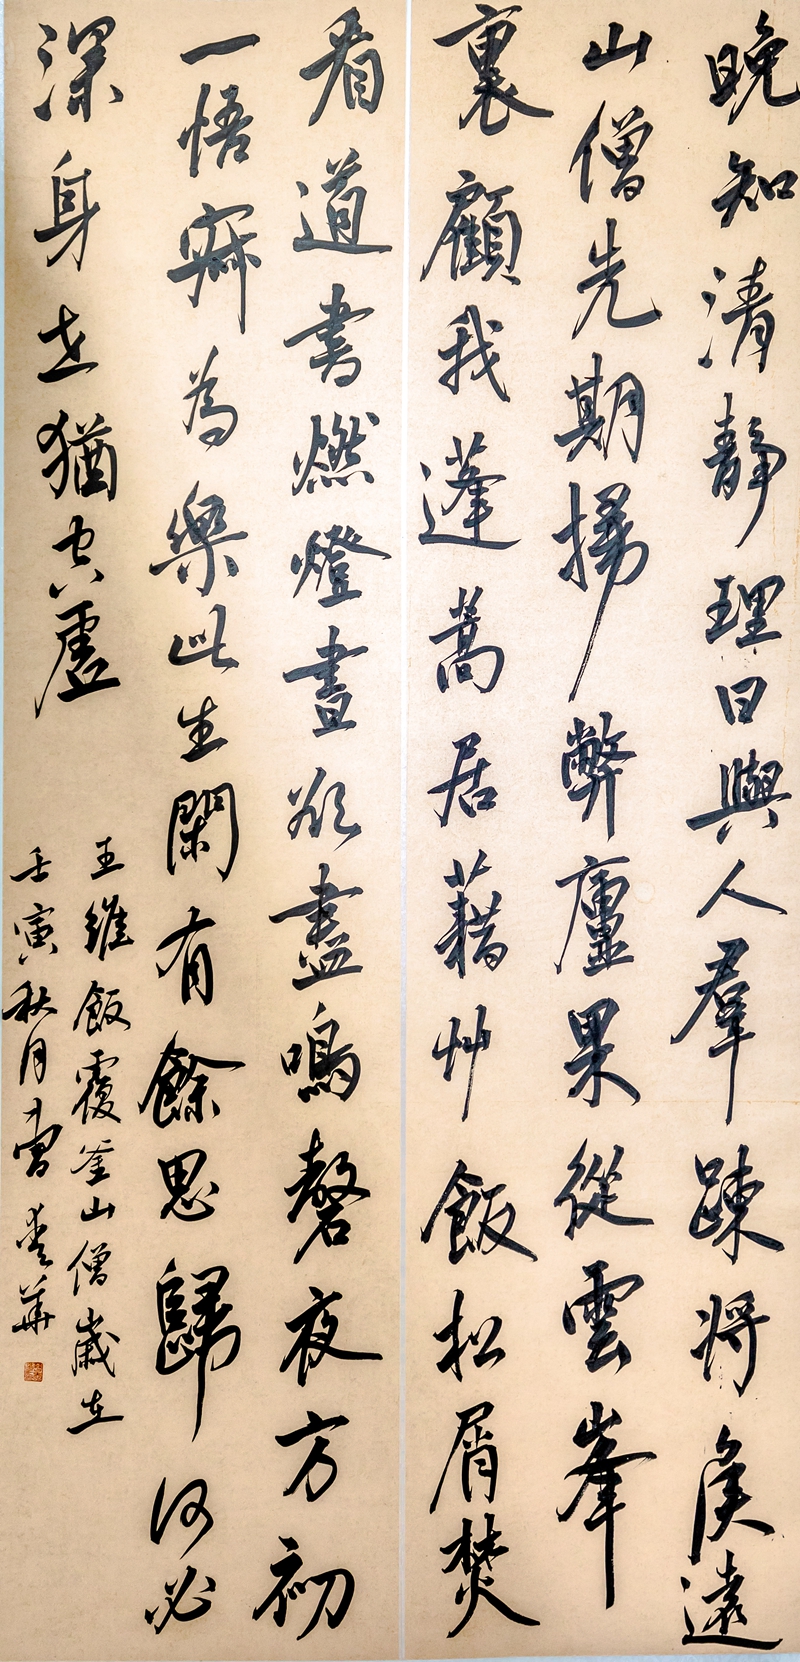 晚知清靜理日與人羣踈將矦遠
山僧先期掃弊廬果從雲峯
裏顧我蓬蒿居藉艸飯松屑焚
看道書燃燈晝欲盡鳴磬夜方初
一悟寂為樂此生閑有餘思歸何必
深身世猶空虛
王維飯覆釜山僧歲在
壬寅秋月